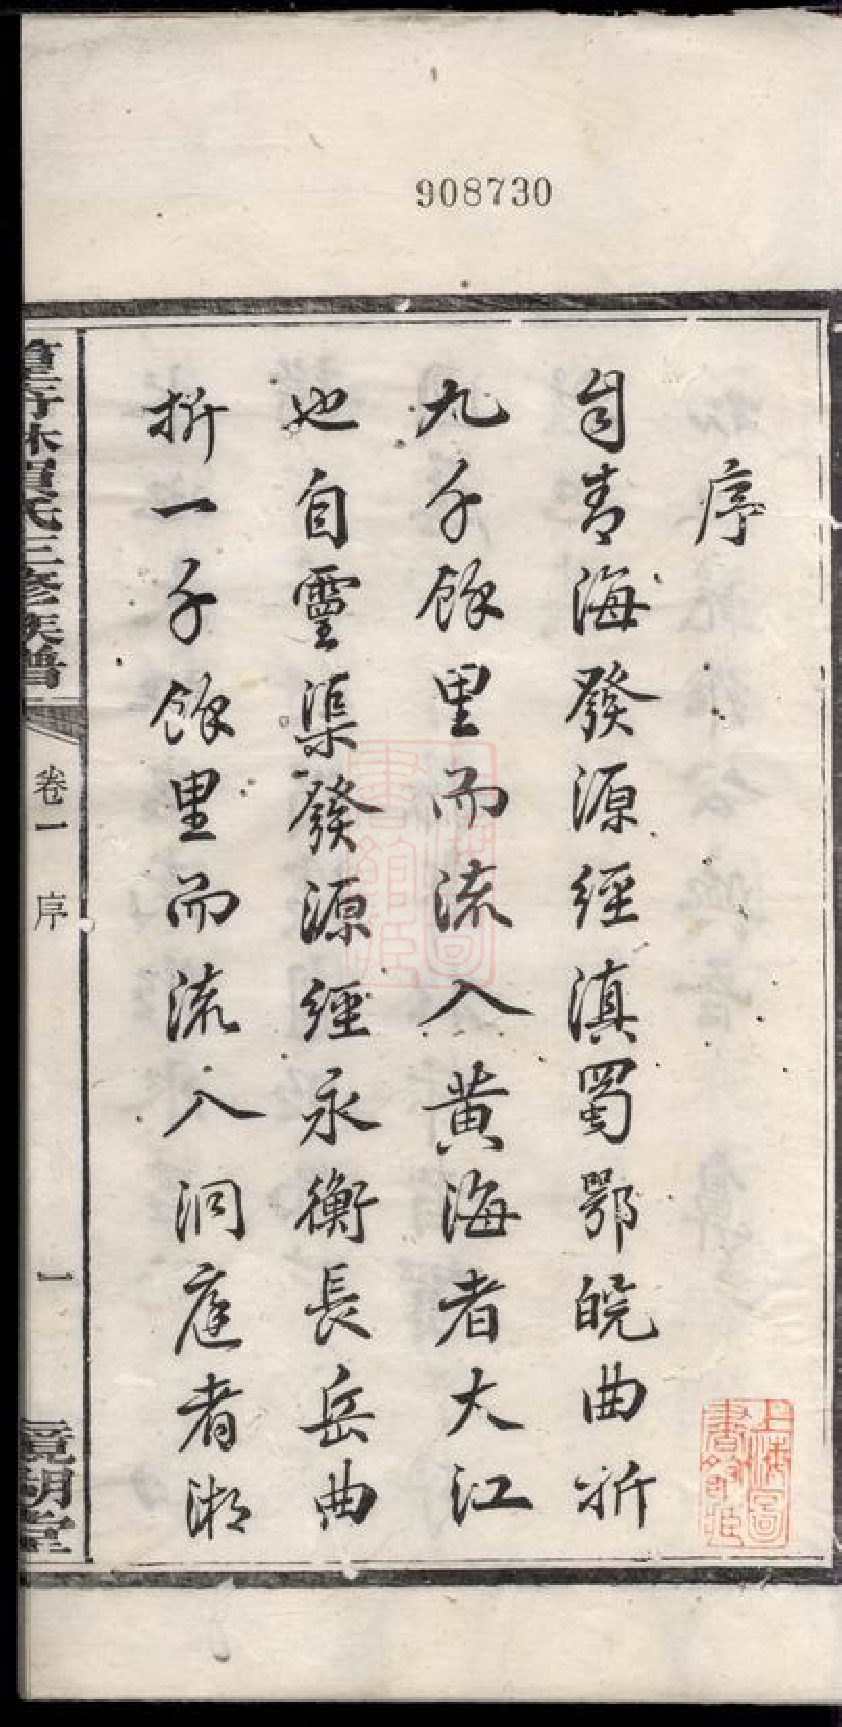 908730
序
自青海發源經滇蜀鄂皖曲折
九千餘里而流入黄海者大江
也自靈渠發源經永衡長岳曲
折一千餘里而流入洞庭者湘
賀氏三修族譜
卷一
序
一
鏡湖堂
上海圖書館藏